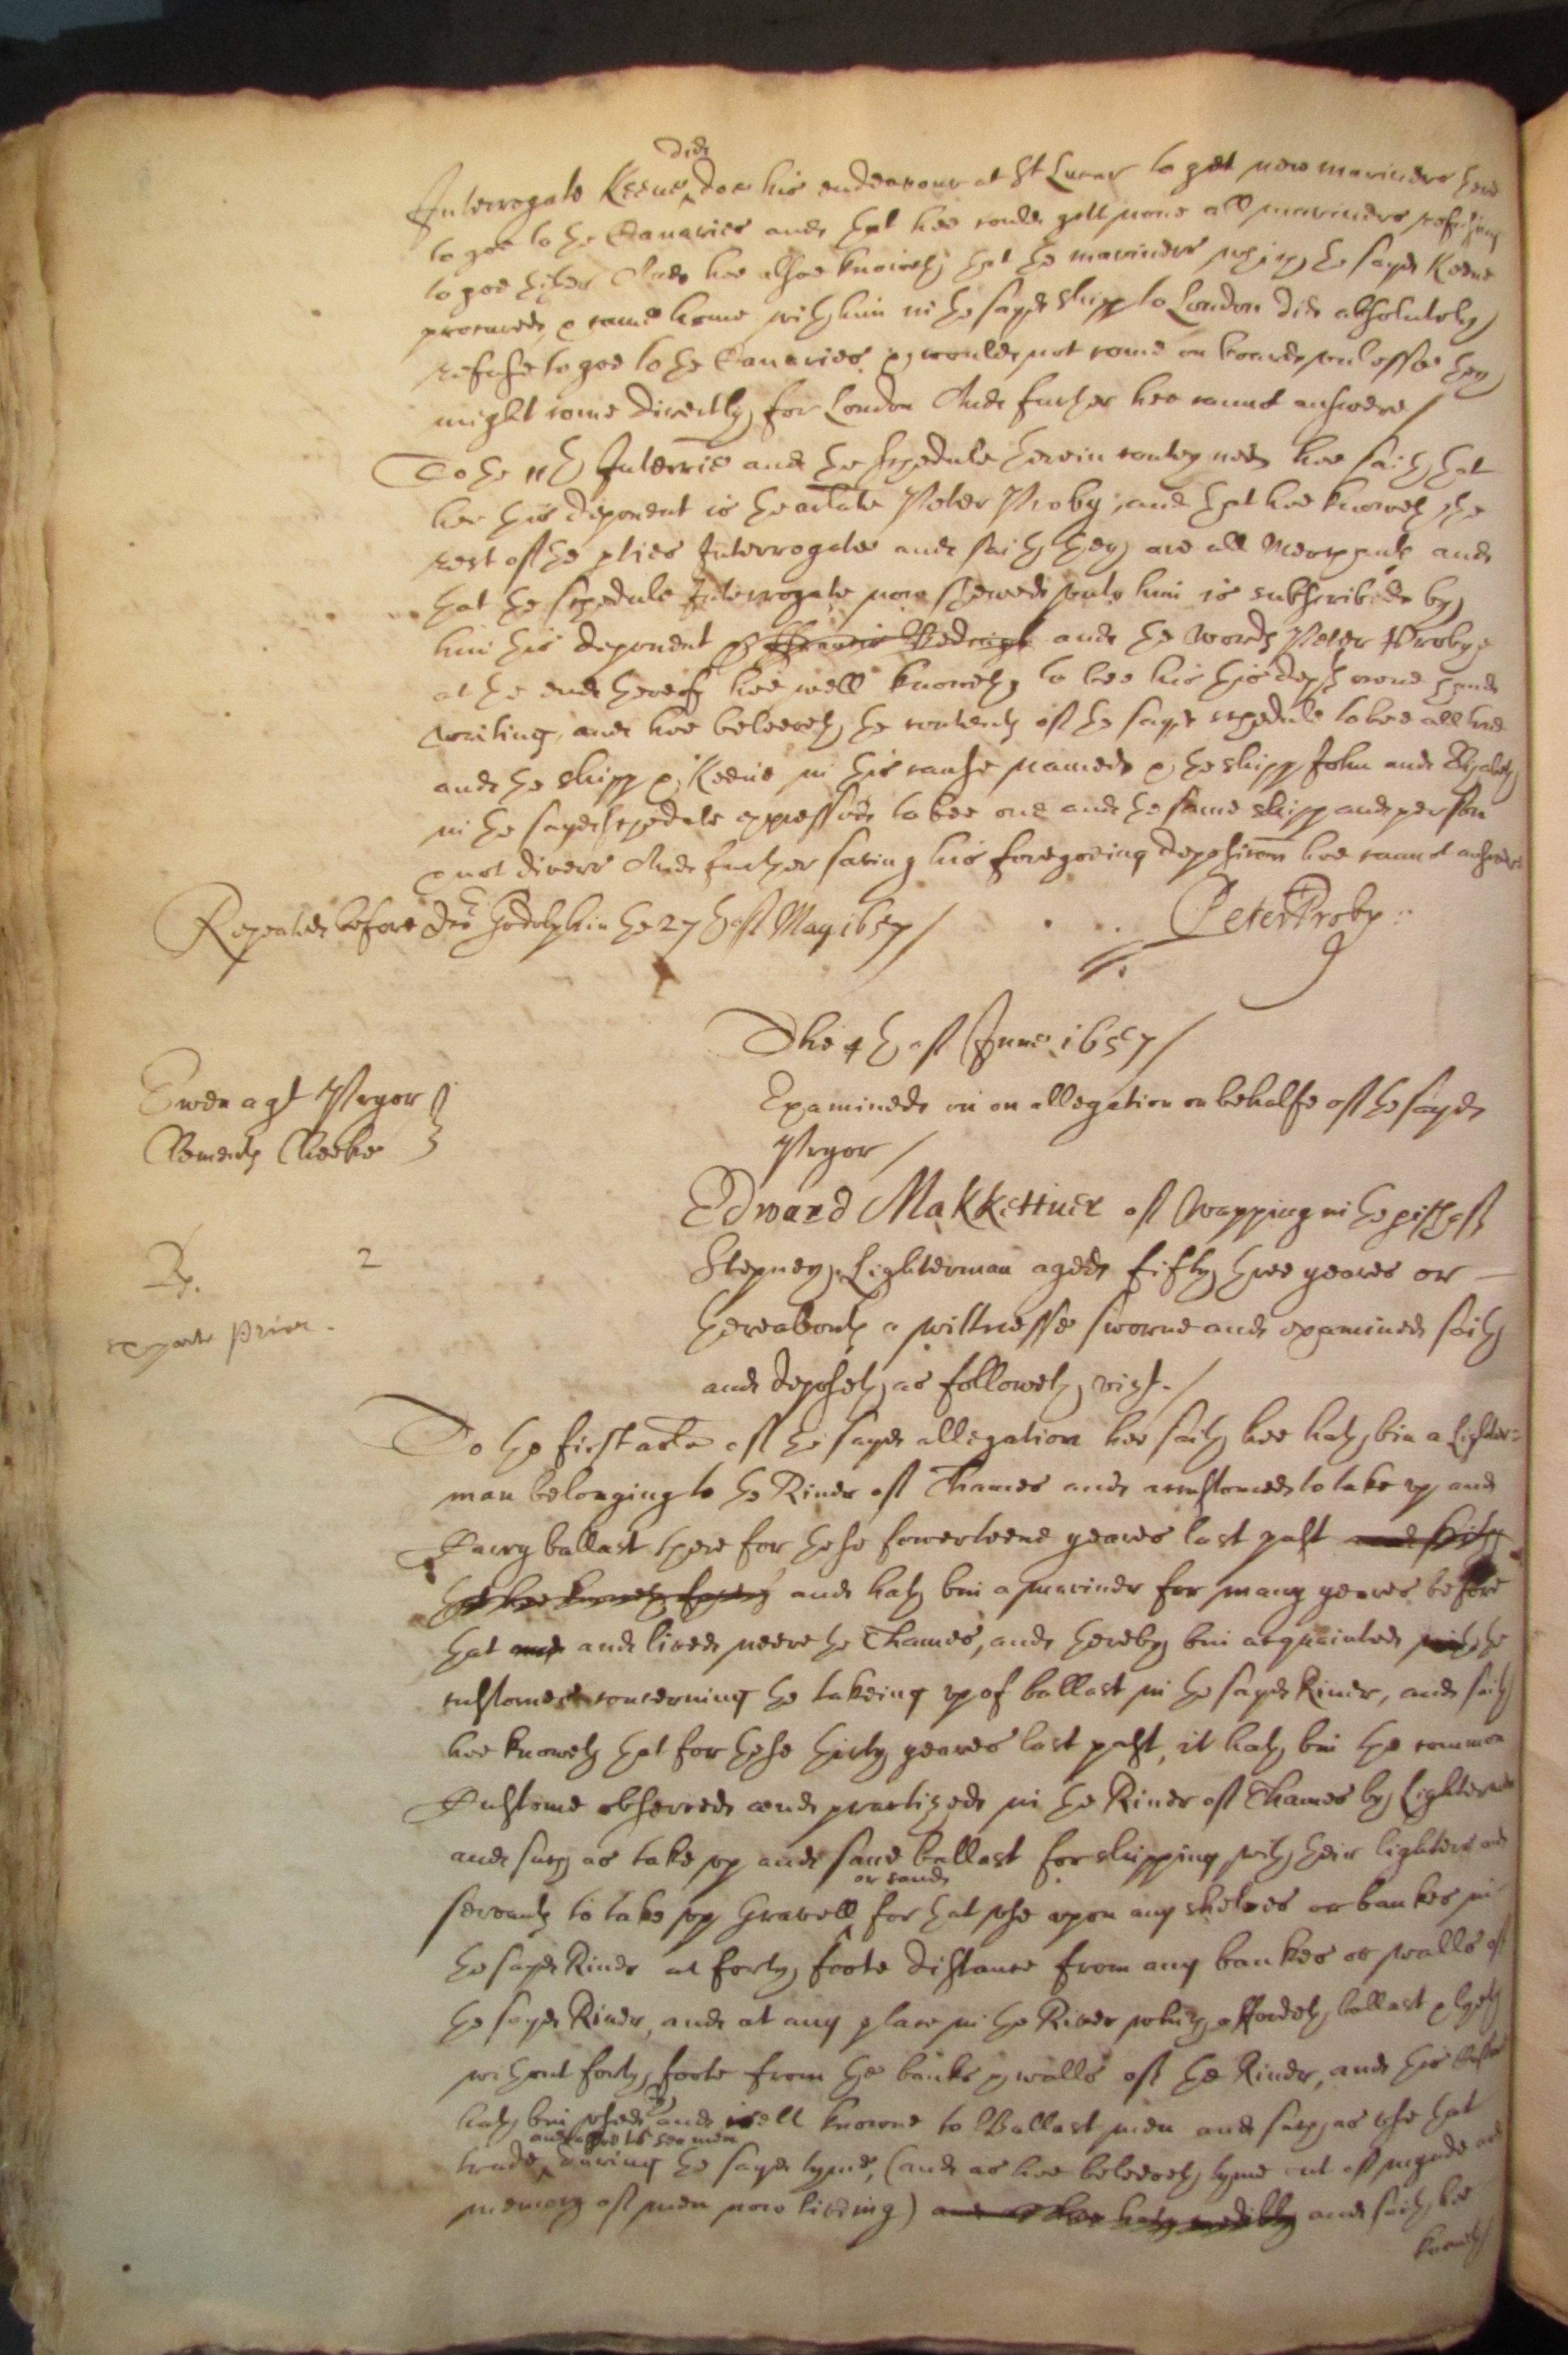 did
Interrogate Keene doe his endeavour at St Lucar to get new mariners there
to goe to the Canaries and that hee could gett none all mariners refuseing
to goe thither And hee alsoe knoweth that the mariners which the sayd Keene
procured, & came home with him in the sayd shipp to London did absolutely
refuse to goe to the Canaries & would not come on board unlesse they
might come directly for London And further hee cannot answere /
To the 11th Interrie and the schedule therein conteyned hee saith that
hee this deponent is the arlate Peter Proby, and that hee knoweth the
rest of the pties Interrogate and saith they are all Merchants and
that the schedule Interrogate now shewed unto him is subscribed by
him this deponent and the words Peter Probye
at the end thereof hee well knoweth to bee his this depts owne hand
writing, and hee beleeveth the contents of the sayd schedule to bee all true
and the shipp & Keene in this cause named & the shipp John and
in the sayd schedule expressed to bee one and the same shipp and person
& not divers And further saving his foregoeing deposicon hee cannot answere
Repeated before dor Godolphin the 27th of May 1657 /
Peter Proby:
The 4th of June 1657 /
Ewen agt Pryor
Clements Cheeke
Examined on an allegation on behalfe of the sayd
Pryor /
Edward Makkettner of Wapping in the pish of
Rp. 2
Stepney Lighterman aged fifty three yeares or
ex parte Prior.
thereabouts a wittnesse sworne and examined saith
and deposeth as followeth, vizt. /
To the first arle of the sayd allegation hee saith hee hath bin a Lighter=
man belonging to the River of Thames and accustomed to take up and
Carry ballast there for these fowerteene yeares last past and saith
that hee knoweth and hath bin a mariner for many yeares before
that and lived neere the Thames, and thereby bin acquainted with the
customes concerning the takeing up of ballast in the sayd River, and saith
hee knoweth that for these thirty yeares last past, it hath bin the common
Custome observed and practized in the River of Thames by Lightermen
and such as take up and save ballast for shipping with their lighters and
or sand
servants to take up Gravell for that use upon any shelves or bankes in
the sayd River at forty foote distance from any bankes or walls of
the sayd River, and at any place in the River which affordeth ballast & lyeth
without forty foote from the banks & walls of the River, and this Custome
hath bin used and well knowne to Ballast men and such as use that
and alsoe to sea men
trade during the sayd tyme, (and as hee beleeveth tyme out of mynde and
memory of men now liveing) and saith hee
knoweth